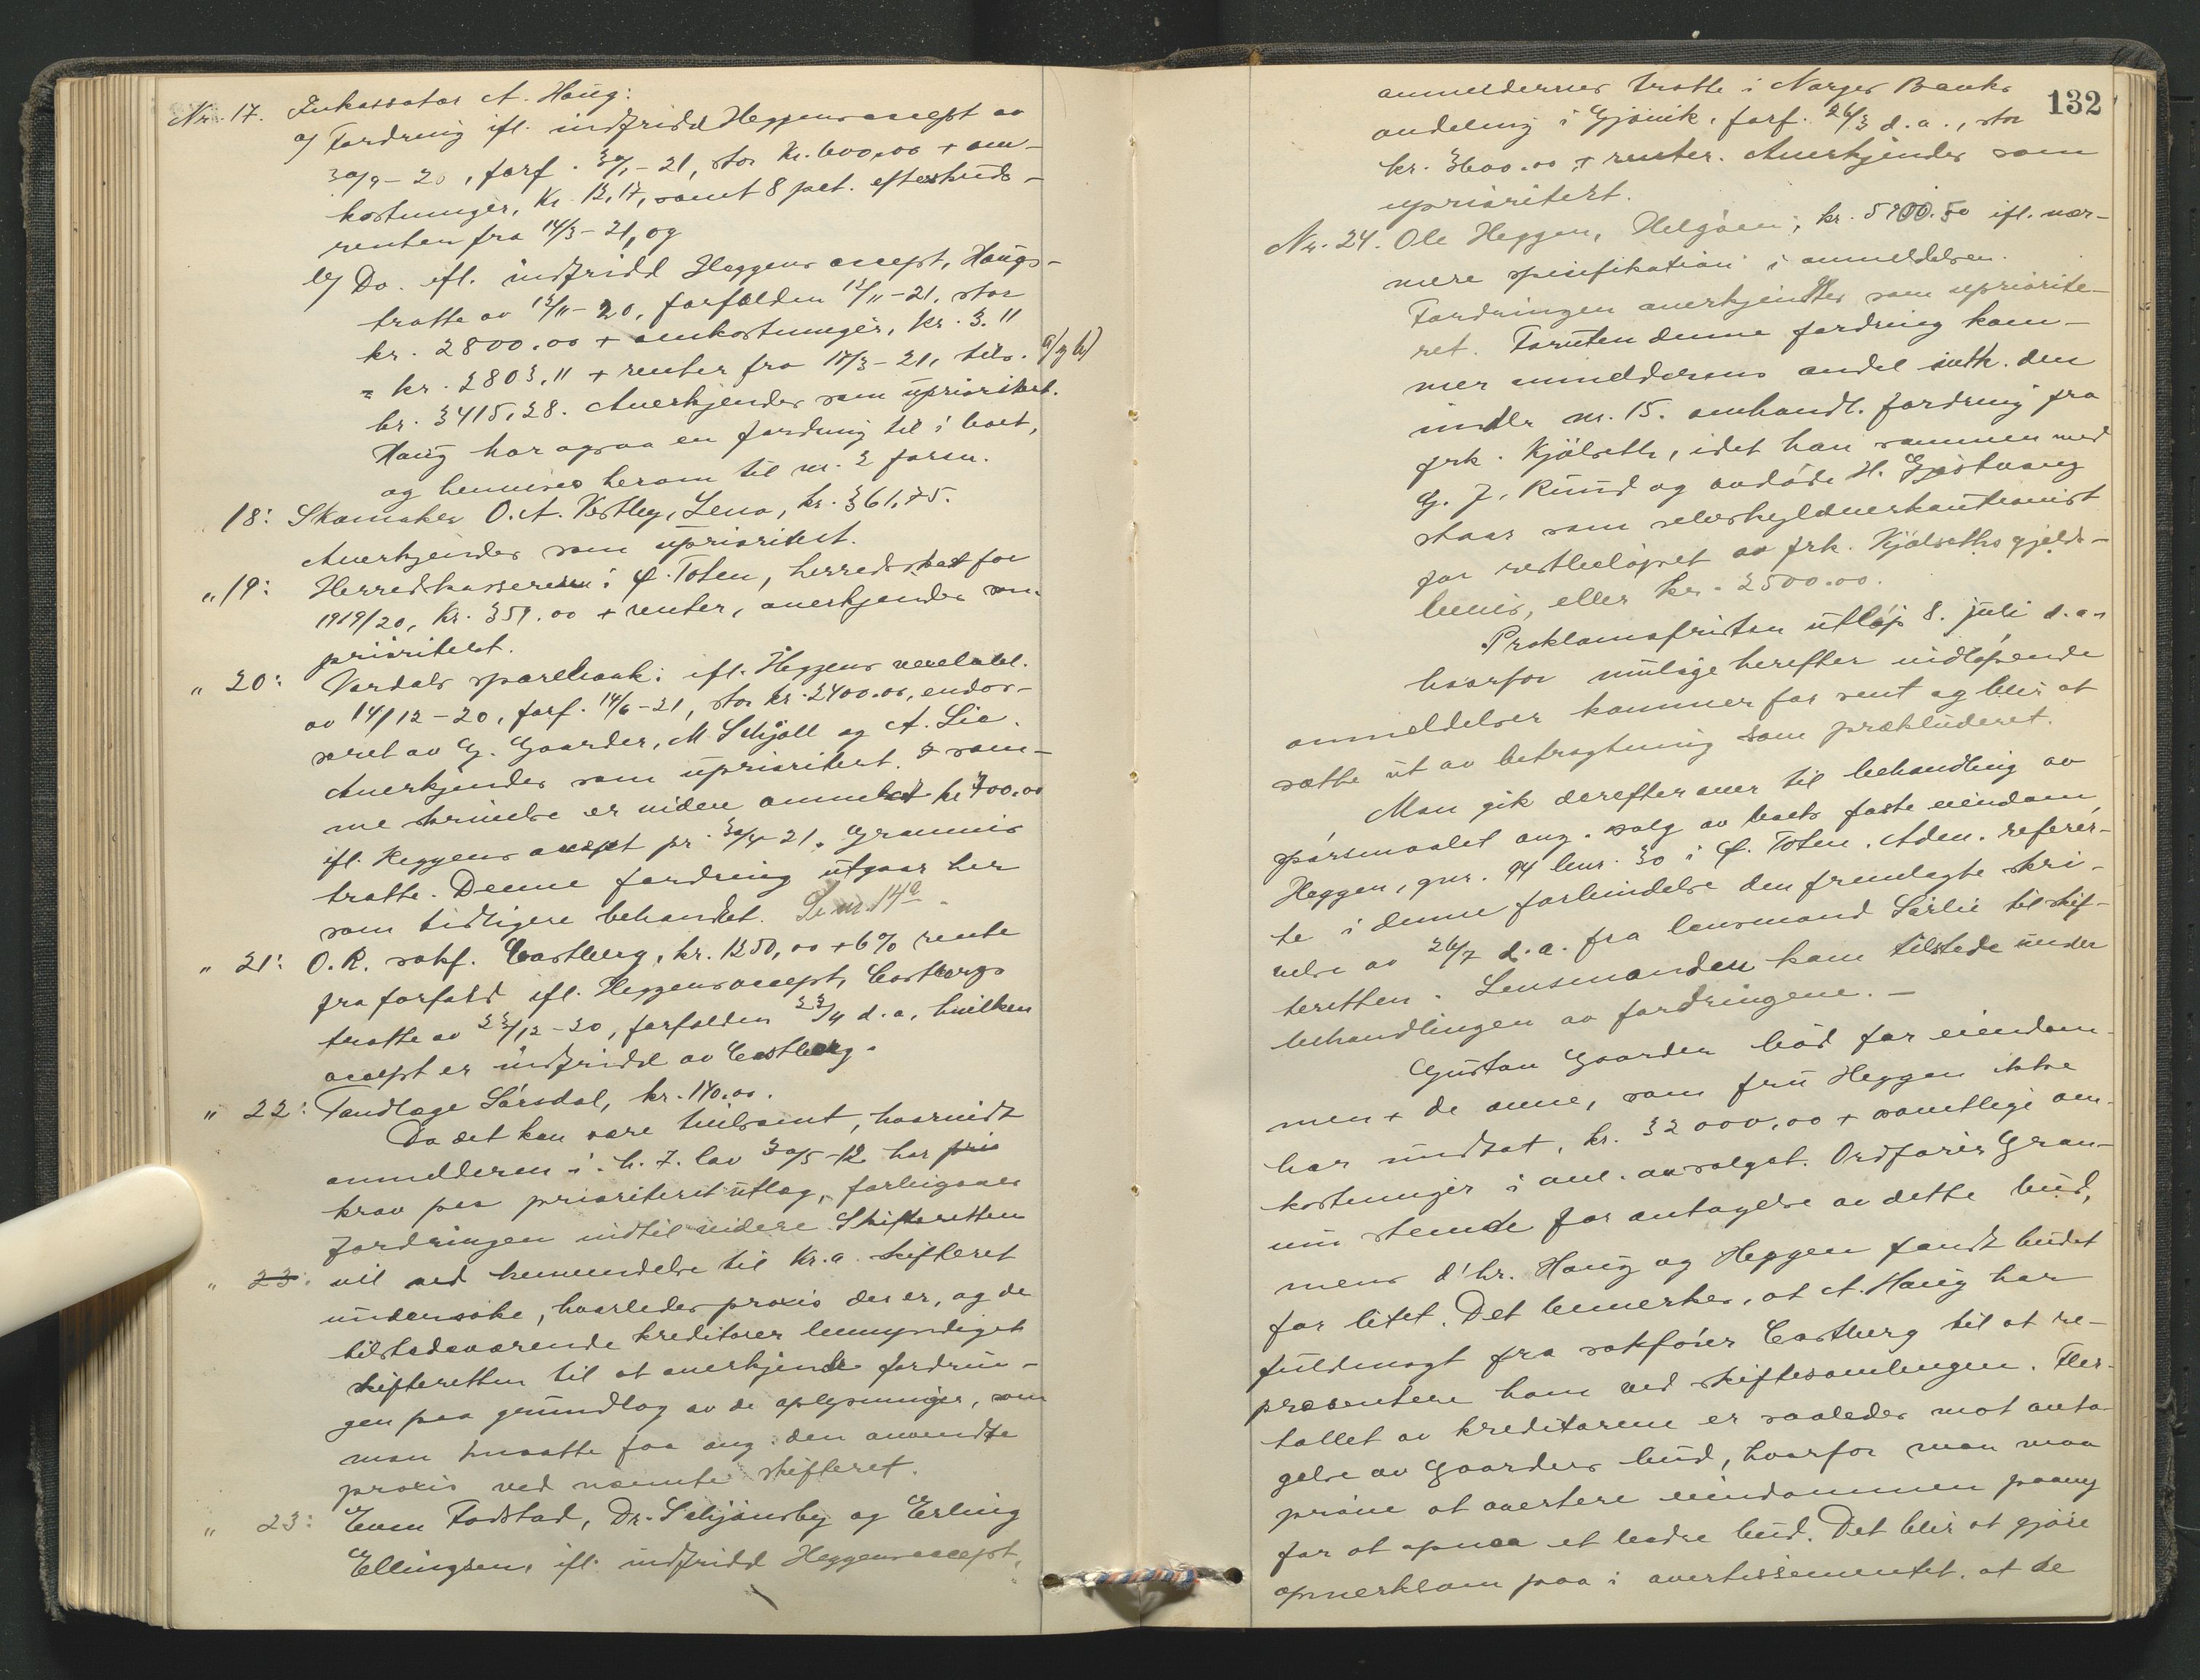 Nr. 17. Inkassator A. Haug:
a/ Fordring ifl. indfridd Heggens accept av
30/9-20, forf. 30/1-21, stor kr. 600.00 + om-
kostninger, kr. 12,17, samt 8 pct. efterskuds-
renten fra 14/3-21, og
b/ Do. ifl. indfridd Heggens accept, Haugs
tratte av 12/11-20, forfalden 12/11-21, stor
kr. 2800.00 + omkostninger, kr. 3.11
= kr. 2803,11 + renter fra 17/3-21, tils. a/ og b/
kr. 3415,28. Anerkjendes som uprioritert.
Haug har ogsaa en fordring til i boet,
og henvises herom til nr. 2 foran.
18: Skomaker O. A. Vestley, Lena, kr. 361,75.
Anerkjendes som uprioritert.
" 19: Herredskassereren i Ø. Toten, herredsskat for
1919/20, kr. 359.00 + renter, anerkjendes som
prioritert.
" 20: Vardals sparebank: ifl. Heggens vexelobl.
av 14/12-20, forf. 14/6-21, stor kr. 2400.00, endos-
seret av G. Gaarder, M Schjöll og A. Lie.
Anerkjendes som uprioritert. I sam-
me skrivelse er videre anmeldt kr 700.00
ifl. Heggens accept pr. 30/4-21. Grannis
tratte. Denne fordring utgaar her
som tidligere behandlet. Se nr. 14a.
" 21: O.R. sakf. Castberg, kr. 1250,00 + 6% rente
fra forfald ifl. Heggens accept, Castbergs
tratte av 22/12-20, forfalden 22/4 d.a. hvilken
accept er indfridd av Castberg.
" 22: Tandlæge Sörsdal, kr. 140.00.
Da det kan være tvilsomt, hvorvidt
anmelderen i h. t. lov 30/5-12 har
krav paa prioriteret utlæg, forbigaaes
fordringen indtil videre. Skifteretten
" 23: vil ved henvendelse til Kr.a. skifteret
undersøke, hvorledes praxis der er, og de
tilstedeværende kreditorer bemyndiget
skifteretten til at anerkjende fordrin-
gen paa grundlag av de oplysninger, som
man maatte faa ang. den anvendte
praxis ved nævnte skifteret.
" 23: Even Fodstad, Dr. Schjönsby og Erling
Ellingsen, ifl. indfridd Heggens accept,
132
anmeldernes tratte i Norges Banks
avdeling i Gjövik, forf. 26/3 d.a., stor
kr. 3600.00 + renter. Anerkjendes som
uprioritert.
Nr. 24. Ole Heggen, Helgöen, kr. 5900.50 ifl. nær-
mere spesifikation i anmeldelsen.
Fordringen anerkjendtes som uprioriter-
ret. Foruten denne fordring kom-
mer anmelderens andel i den
under nr. 15. omhandl. fordring fra
frk. Kjölseth, idet han sammen med
G. J. Rund og avdöde H. Gjestvang
staar som selvskyldnerkautionist
for restbeløpet av frk. Kjölseths gjelds-
bevis, eller kr. 2500.00.
Proklamafristen utlöp 8. juli d.a.,
hvorfor mulige herefter indløpende
anmeldelser kommer for sent og blir at
sætte ut av betragtning som prækluderet.
Man gik derefter over til behandling av
spörsmaalet ang. salg av boets faste eiendom,
Heggen, gnr. 94 bnr. 30 i Ø. Toten. Adm. referer-
te i denne forbindelse den fremlagte skri-
velse av 26/7 d.a. fra lensmand Sörlie til skif-
teretten. Lensmanden kom tilstede under
behandlingen av fordringene. —
Gustav Gaarder böd for eiendom-
men + de onne, som fru Heggen ikke
har undtat, kr. 32000,00 + samtlige om-
kostninger i anl. av salget. Ordförer Gran-
um stemte for antagelse av dette bud,
mens d'hr. Haug og Heggen fandt budet
for litet. Det bemerkes, at A. Haug har
fuldmagt fra sakförer Castberg til at re-
præsentere ham ved skiftesamlingen. Fler-
tallet av kreditorene er saaledes mot anta-
gelse av Gaarders bud, hvorfor man maa
pröve at avertere eiendommen paany
for at opnaa et bedre bud. Det blir at gjöre
opmerksom paa i avertissementet, at de